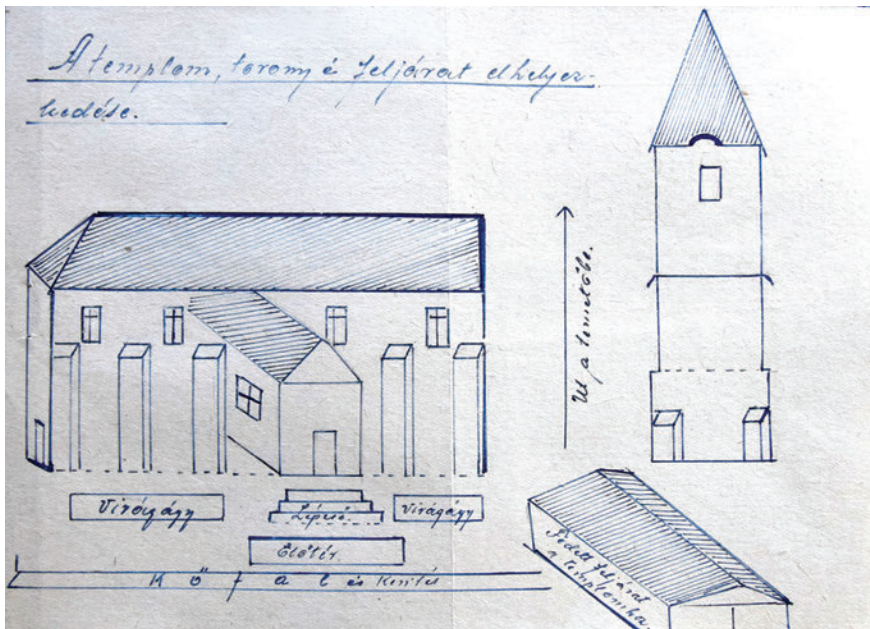 A templom, torony é feljárat elhelyez-
kedése.
Út a temetőbe.
Virágágy
Lépcső.
Virágágy
Előtér.
Kőfal és Kerítés
Fedett feljárat
a templomhoz.